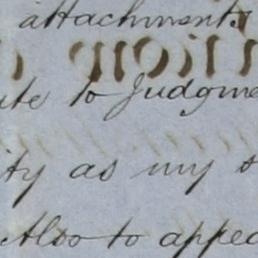 attachments
ute to Judgme
ity as my s
Also to appea